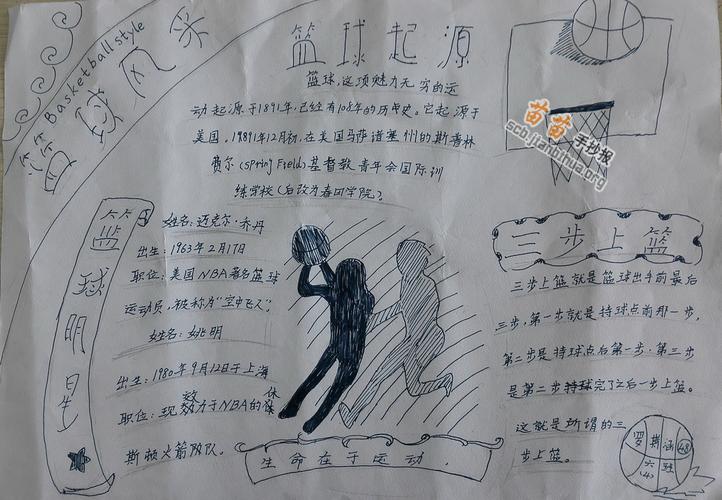 Basketball style
篮球风采
篮球起源
篮球,这项魅力无穷的运
动起源于1891年,已经有108年的历史。它起源于
美国,19891年12月初,在美国马萨诸塞州的斯普林
费尔(Spring Field)基督教青年会国际训
练学校(后改为春田学院)
苗苗手抄报
scb.jianbihua.org
篮球明星
姓名:迈克尔·乔丹
出生:1963年2月17日
职位:美国NBA著名篮球
运动员,被称为“空中飞人”
姓名:姚明
出生:1980年9月12日于上海
职位:现效力于NBA的休
斯顿火箭队队。
生命在于运动.
三步上篮
三步上篮就是篮球出手前最后
三步,第一步就是持球点前那一步,
第二步是持球点后第一步.第三步
是第二步持球完了之后一步上篮。
这就是所谓的三
步上篮。
罗斯涵
48
六(4)班